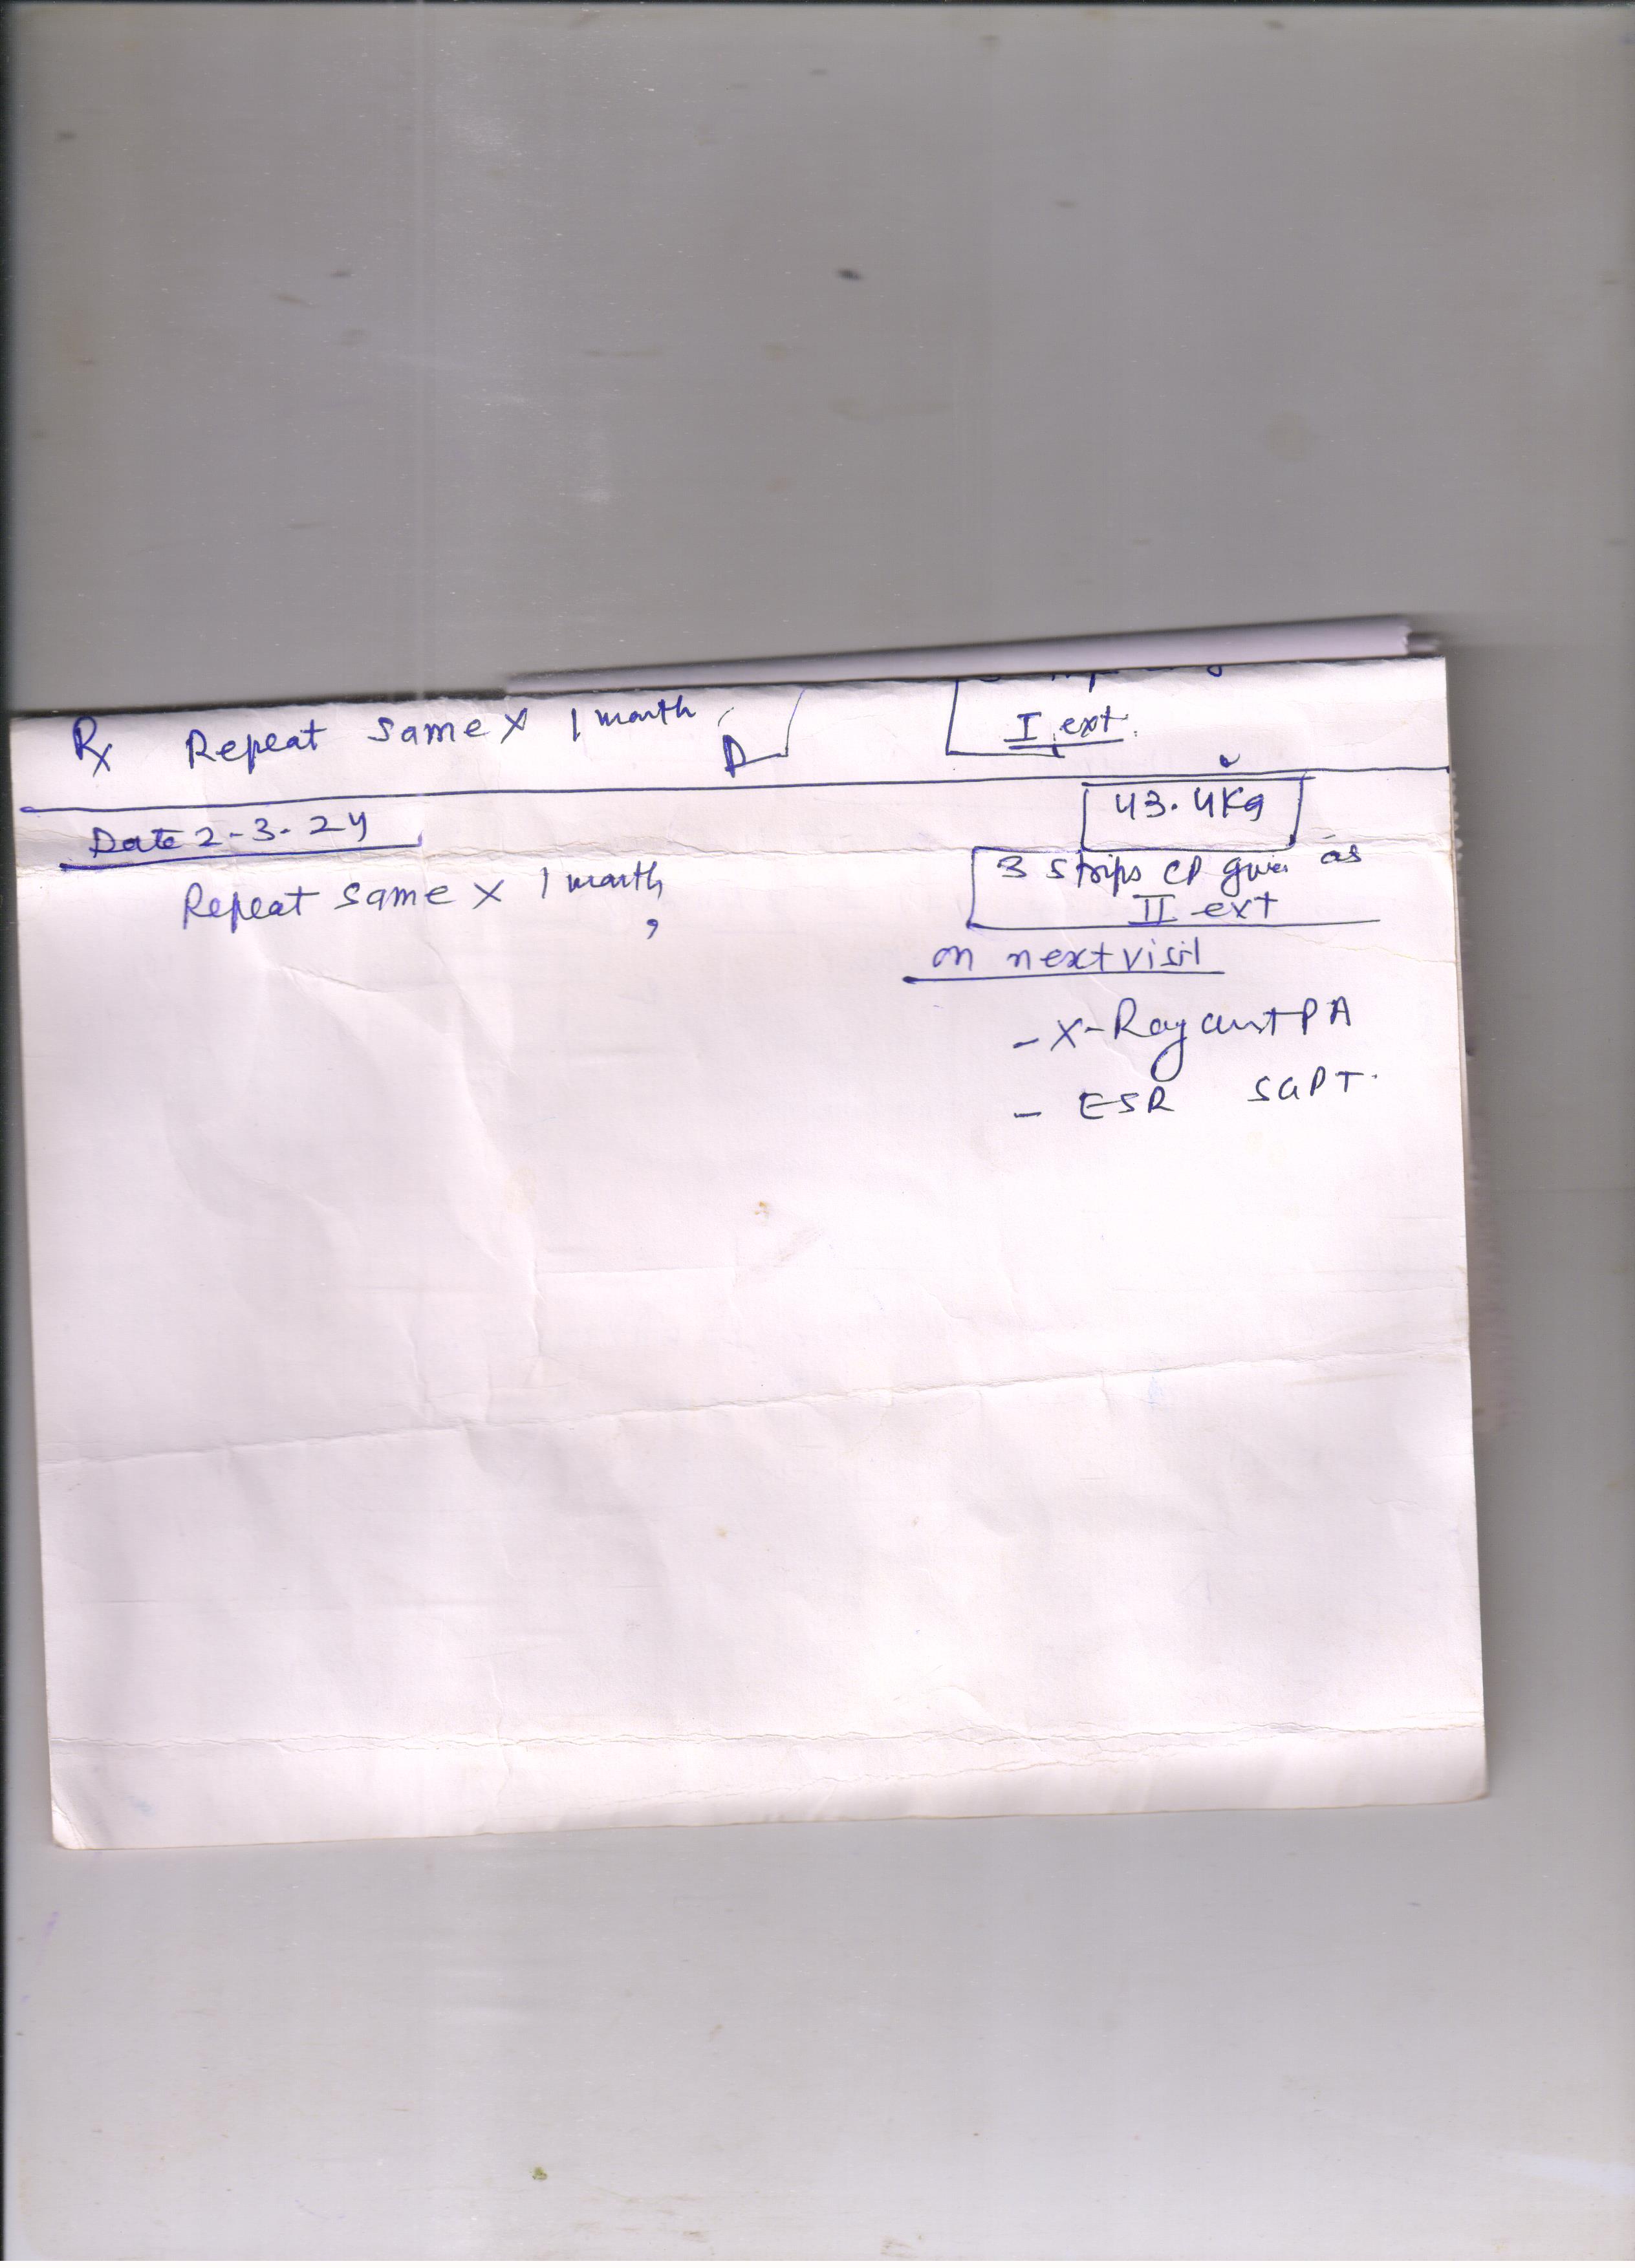 Rx Repeat same x 1 month
I ext.
43.4Kg
Date 2-3-24
3 strips CP given as
II ext
Repeat same x 1 month,
on next visit
- X-Ray chest PA
- ESR SGPT.